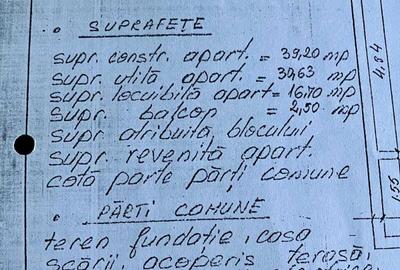 SUPRAFEȚE
supr. constr. apart. = 39,20 mp
supr. utilă apart. = 30,63 mp
supr. locuibilă apart = 16,10 mp
supr. balcon = 2,50 mp
supr. atribuită blocului
supr. revenită apart.
cotă parte părți comune
PĂRȚI COMUNE
teren fundație, casa
scării, acoperiș terasă,
4,84
1,55